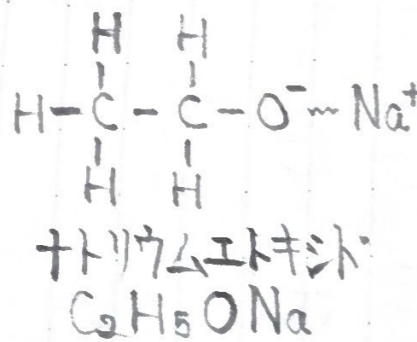 H H
H-C-C-O⁻…Na⁺
H H
ナトリウムエトキシド
C₂H₅ONa